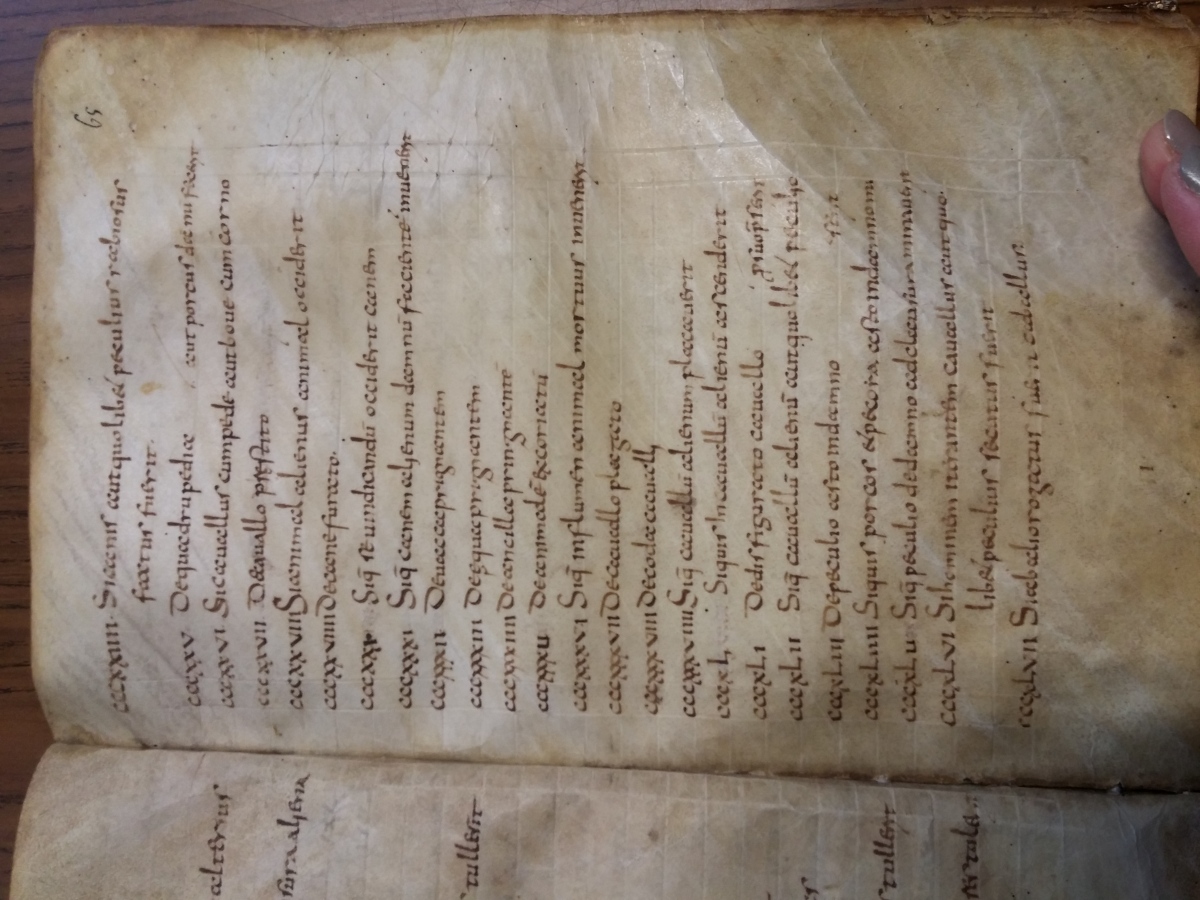 65
cccxxiiii. Si canis aut quolibet peculius rabiosus
factus fuerit.
cccxxv De quadrupedia aut porcus damnū fecerit
cccxxvi Si cavallus cum pede aut bove cum corno
cccxxvii De cavallo prestito
cccxxviii Si animal alienus animal occiderit
cccxxviiii De cane furato.
cccxxx Siq̄ se vindicandū occiderit canem
cccxxxi Siq̄ canem alienum damnū faciente invenerit
cccxxxii De vacca prignantem
cccxxxiii De equa prignantem
cccxxxiiii De ancilla pringnante
cccxxxv De animale excoriatū
cccxxxvi Siq̄ in flumen animal mortuus invenerit
cccxxxvii De cavallo plagato
cccxxxviii De coda cavalli
cccxxxviiii Siq̄ cavallū alienum placaverit
cccxL Siquis in cavallū alienū ascenderit
cccxLi De disfigurato cavallo
cccxLii Siq̄ cavallū alienū aut quolibet peculio
cccxLiii De peculio asto in damno
cccxLiiii Siquis porcos et pecora asto in damno mi
serit
cccxLv Siq̄ peculio de damno ad clausura minaverit
cccxLvi Si hominem iterantem cavallus aut quo
libet peculius secutus fuerit
cccxLvii Si ab alio rogatus fuerit caballus
alterius
sura aliena
tullerit
s
s tullerit